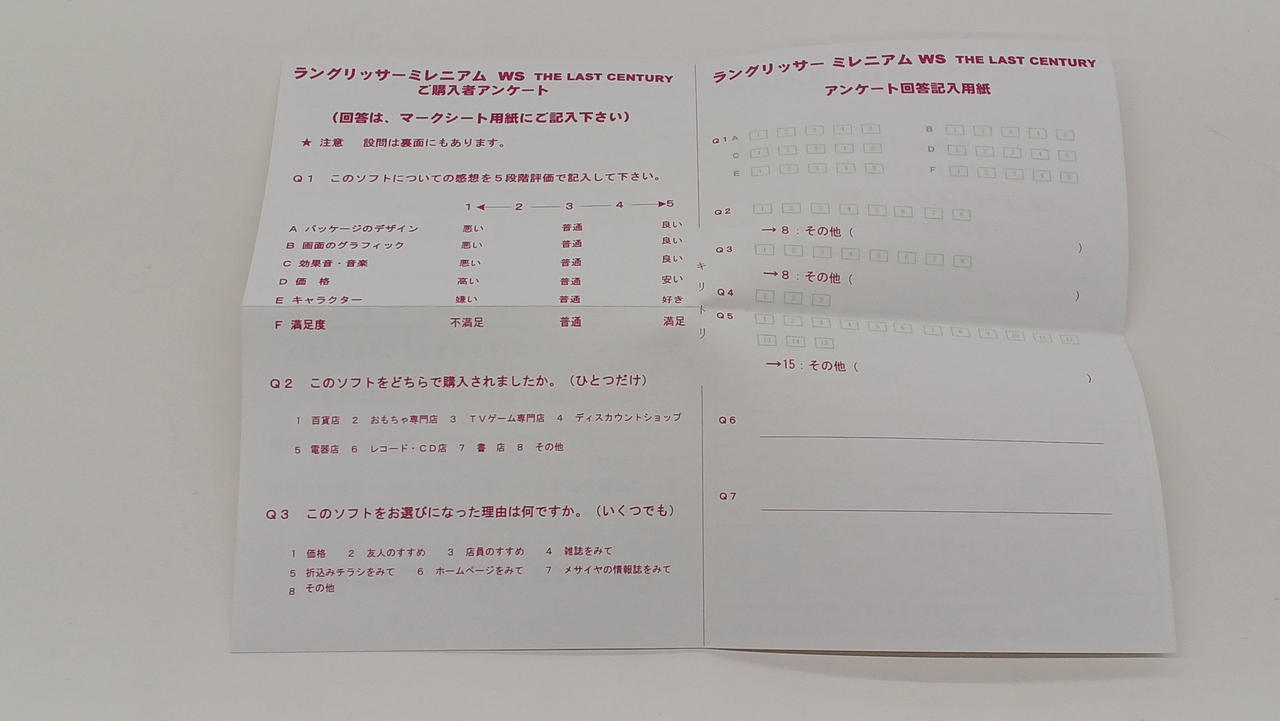 ラングリッサーミレニアム WS THE LAST CENTURY
ご購入者アンケート
（回答は、マークシート用紙にご記入下さい）
★ 注意　設問は裏面にもあります。
Ｑ１　このソフトについての感想を５段階評価で記入して下さい。
1 ◀── 2 ── 3 ── 4 ──▶5
Ａ パッケージのデザイン　悪い　普通　良い
Ｂ 画面のグラフィック　悪い　普通　良い
Ｃ 効果音・音楽　悪い　普通　良い
Ｄ 価　格　高い　普通　安い
Ｅ キャラクター　嫌い　普通　好き
Ｆ 満足度　不満足　普通　満足
Ｑ２　このソフトをどちらで購入されましたか。（ひとつだけ）
１ 百貨店　２ おもちゃ専門店　３ ＴＶゲーム専門店　４ ディスカウントショップ
５ 電器店　６ レコード・ＣＤ店　７ 書　店　８ その他
Ｑ３　このソフトをお選びになった理由は何ですか。（いくつでも）
１ 価格　２ 友人のすすめ　３ 店員のすすめ　４ 雑誌をみて
５ 折込みチラシをみて　６ ホームページをみて　７ メサイヤの情報誌をみて
８ その他
キリトリ
ラングリッサー ミレニアム WS THE LAST CENTURY
アンケート回答記入用紙
Ｑ１ A 1 2 3 4 5　B 1 2 3 4 5
C 1 2 3 4 5　D 1 2 3 4 5
E 1 2 3 4 5　F 1 2 3 4 5
Ｑ２ 1 2 3 4 5 6 7 8
→８：その他（　　　）
Ｑ３ 1 2 3 4 5 6 7 8
→８：その他（　　　）
Ｑ４ 1 2 3
Ｑ５ 1 2 3 4 5 6 7 8 9 10 11 12
13 14 15
→15：その他（　　　）
Ｑ６
Ｑ７